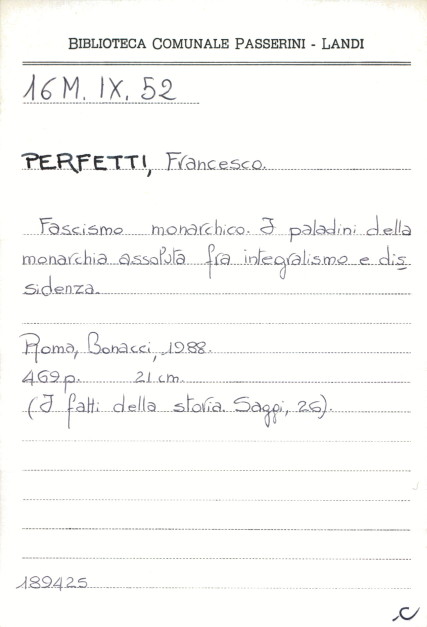 BIBLIOTECA COMUNALE PASSERINI - LANDI
16 M. IX. 52
PERFETTI, Francesco.
Fascismo monarchico. I paladini della
monarchia assoluta fra integralismo e dis
sidenza.
Roma, Bonacci, 1988.
469 p. 21 cm.
(I fatti della storia. Saggi, 26).
189425
C